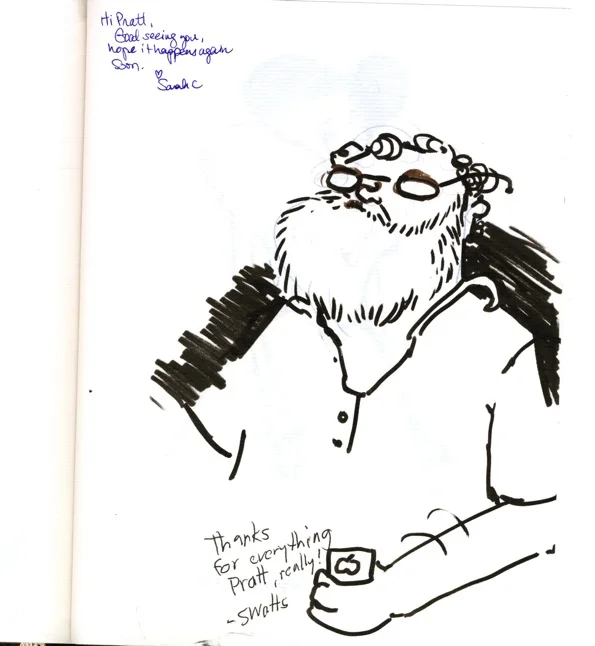 Hi Pratt,
Good seeing you,
hope it happens again
Soon.
Sarah C
Thanks
for everything
Pratt, really!
-SWatts